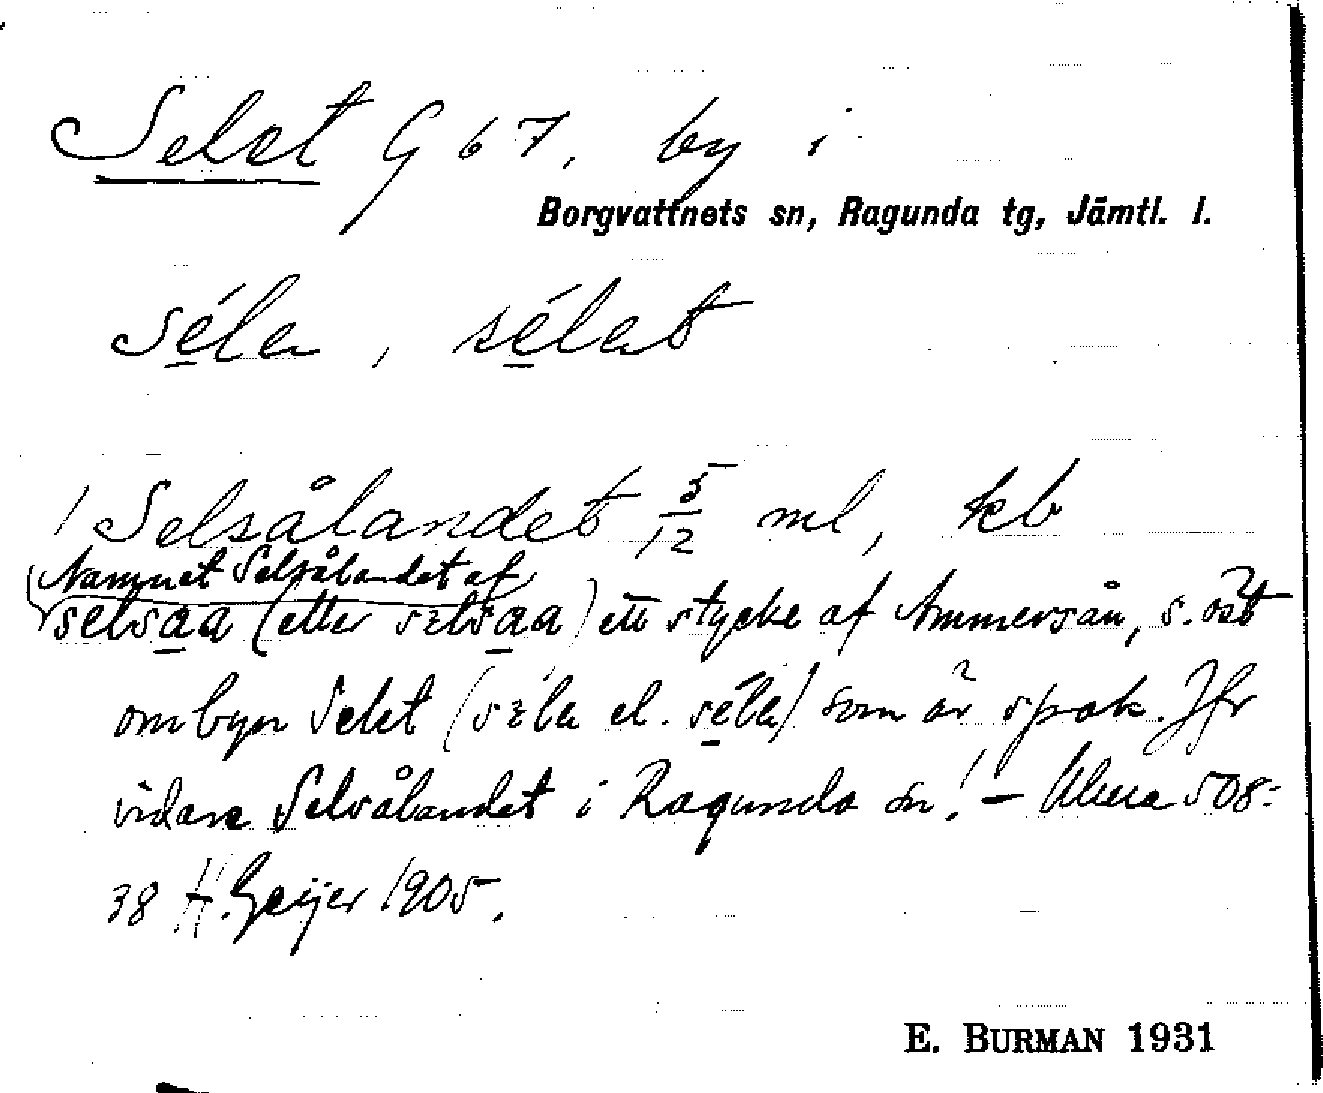 Selet G 67, by i
Borgvattnets sn, Ragunda tg, Jämtl. l.
séla, sélat
1 Selsålandet 5/12 ml, kb
(Namnet Selsålandet af
selsaa (eller sɛlsaa) ett stycke af Ammersån, s. öst
om byn Selet (sɛ́la el. séla) som är spak. Jfr
vidare Selsålandet i Ragunda sn! – Ulma 508:
38 H. Geijer 1905.
E. BURMAN 1931